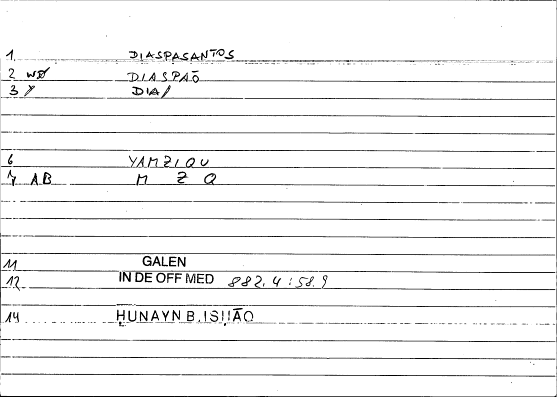 1 DIASPASANTOS
2 WØ DIASPAŌ
3 Y DIA/
6 YAMZIQU
7 AB M Z Q
11 GALEN
12 IN DE OFF MED 882.4:58.9
14 ḤUNAYN B.ISḤĀQ